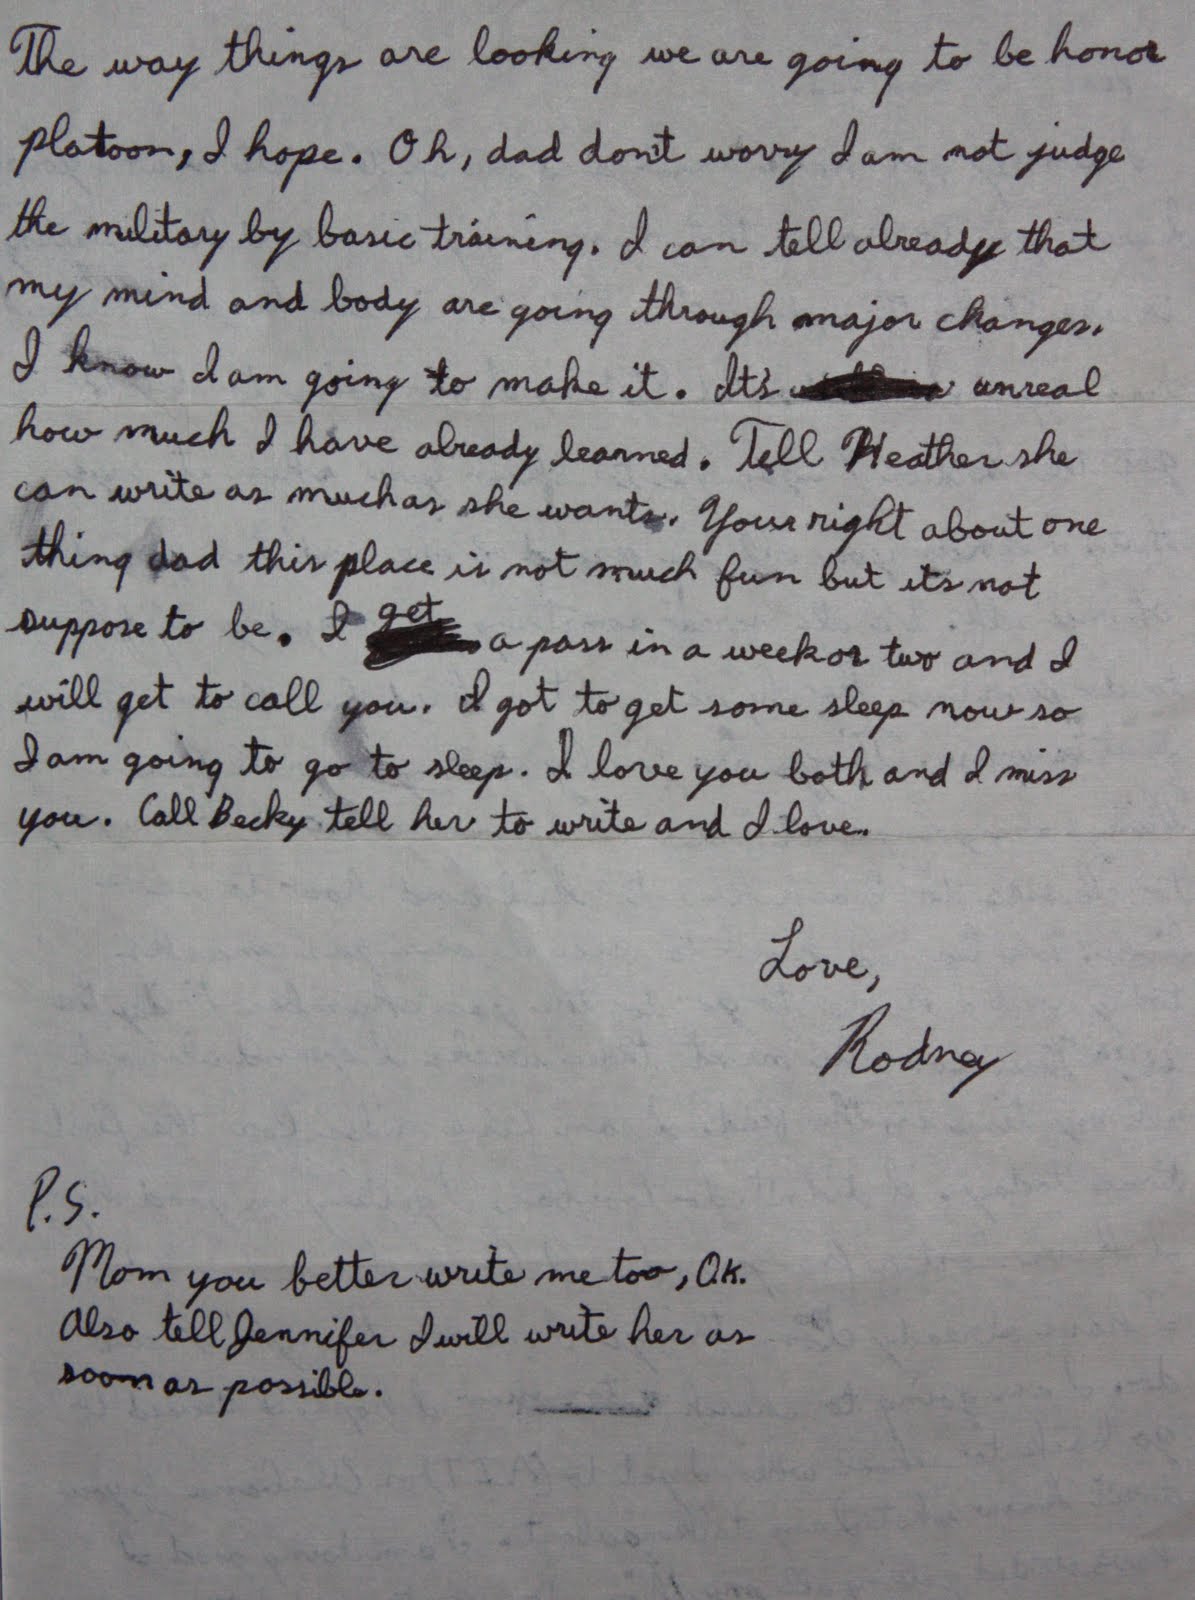 The way things are looking we are going to be honor
platoon, I hope. Oh, dad don't worry I am not judge
the military by basic training. I can tell already that
my mind and body are going through major changes.
I know I am going to make it. It's unreal
how much I have already learned. Tell Heather she
can write as much as she wants. Your right about one
thing dad this place is not much fun but its not
suppose to be. I get a pass in a week or two and I
will get to call you. I got to get some sleep now so
I am going to go to sleep. I love you both and I miss
you. Call Becky tell her to write and I love.
Love,
Rodney
P.S.
Mom you better write me too, O.K.
Also tell Jennifer I will write her as
soon as possible.